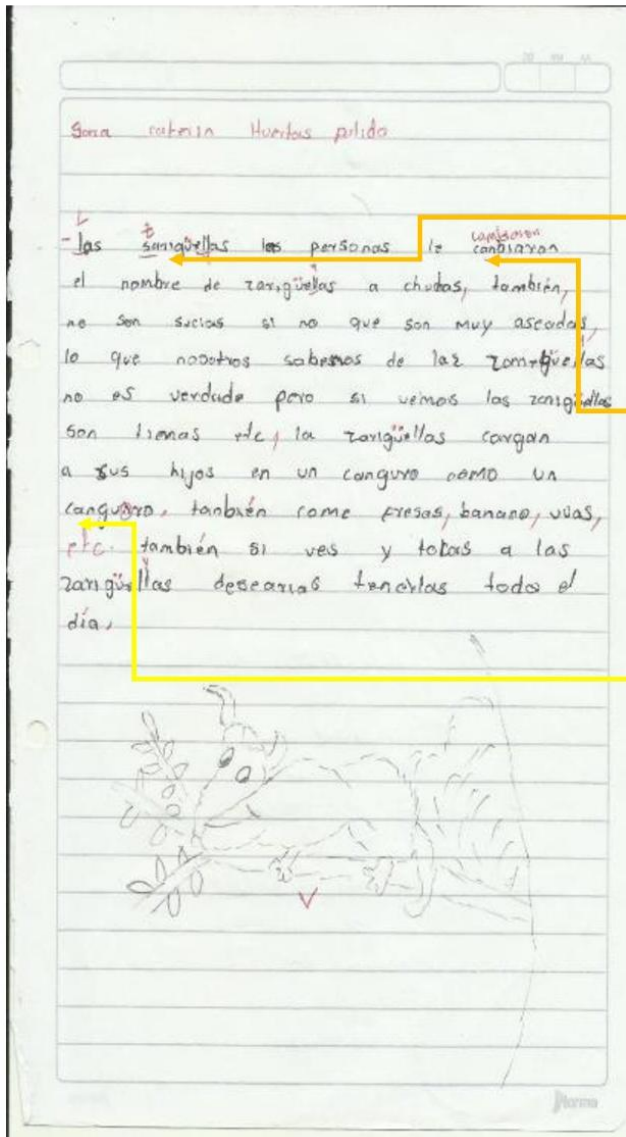 Huertas pulido
L z cambiaron
- las sarigüellas las personas le canbiaron
el nombre de zarigüellas a chuchas, también,
no son sucias si no que son muy aseadas,
lo que nosotros sabemos de las zarigüellas
no es verdade pero si veimos las zarigüellas
son tienas etc, la zarigüellas cargan
a sus hijos en un canguro como un
canguro, tanbién come fresas, banano, uvas,
etc. también si ves y tokas a las
zarigüellas desearias tenerlas todo el
día,
Norma